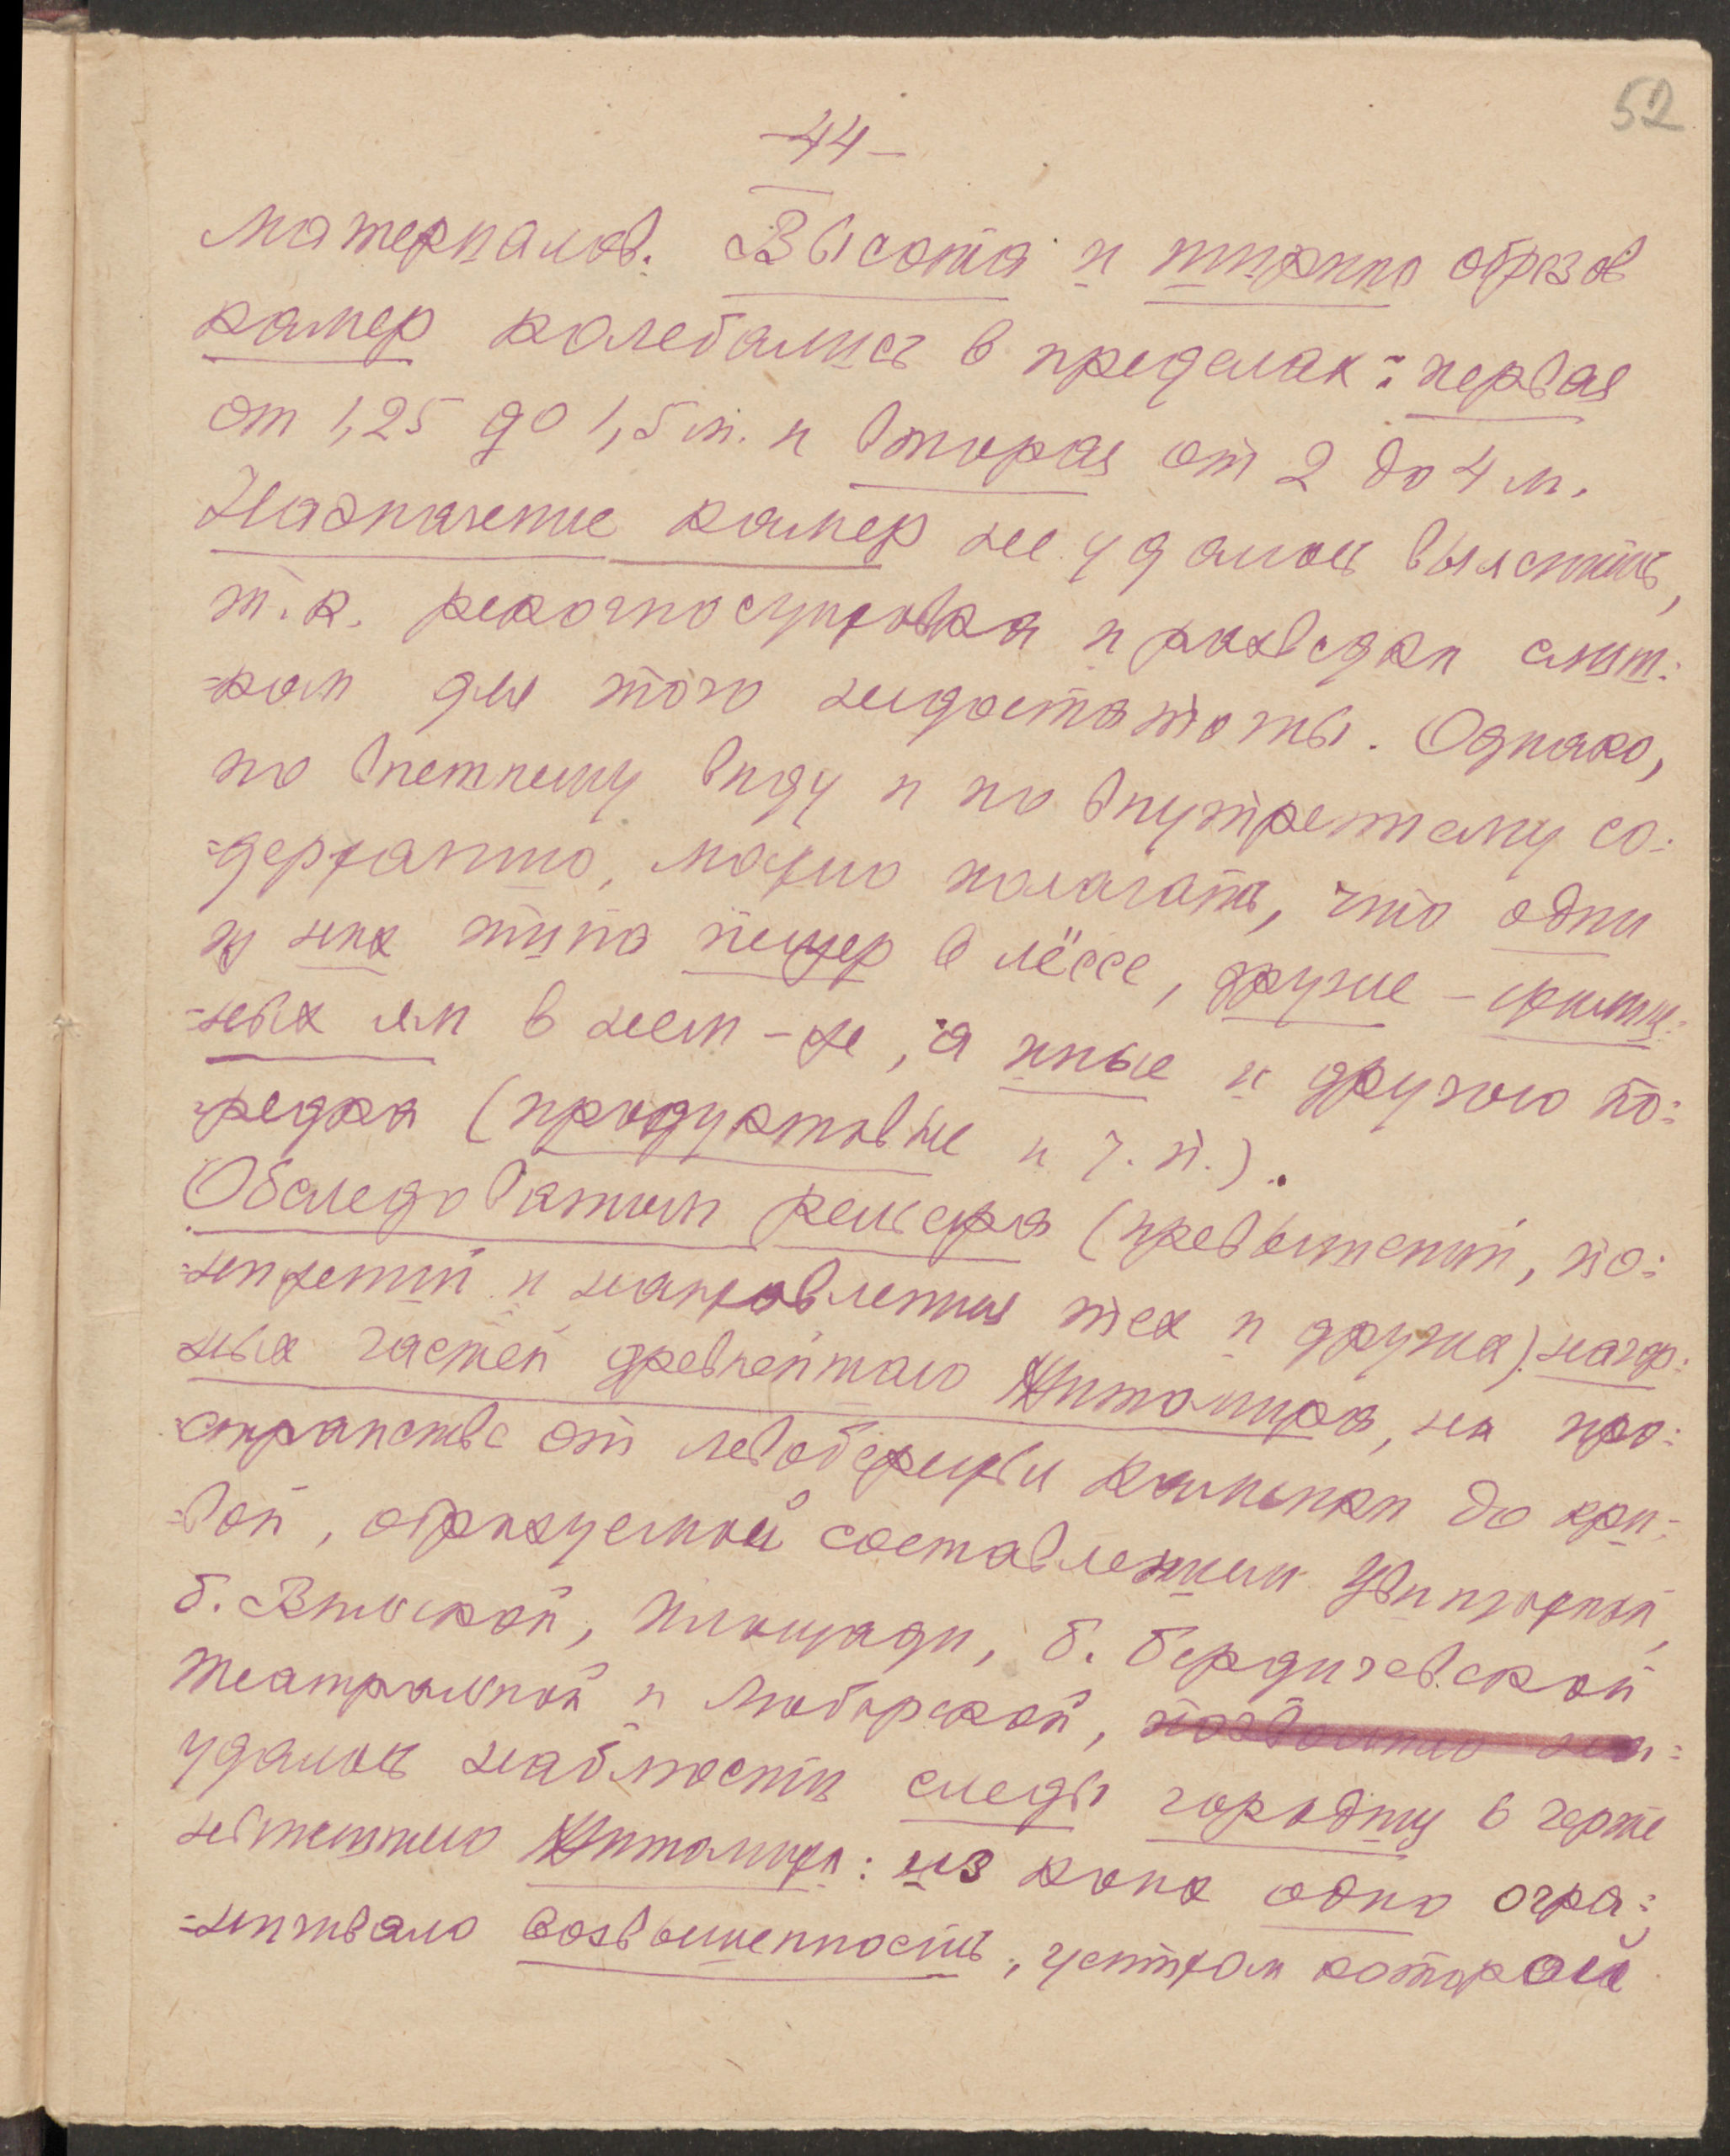 52
-44-
материалов. Высота и ширина обрезов
камер колебались в пределах: первая
от 1,25 до 1,5 м. и вторая от 2 до 4 м.
Назначение камер не удалось выяснить,
т.к. рекогносцировка и разведки слиш=
=ком для того недостаточны. Однако,
по внешнему виду и по внутреннему со=
=держанию, можно полагать, что одни
из них типа пещер в лёссе, другие –
=ных ям в нем-же, а иные и другого по=
=рядка (продуктовые и т.п.).
Обследованием рельефа (превышений, по=
=нижений и направления тех и других) нагор=
ных частей древнейшаго Житомира, на про=
=странстве от левобережья Каменки до кри=
=вой, образуемой составлением
б. Вильской, площади, б. Бердичевской
Театральной и Любарской,
удалось наблюсти следы городищ в черте
нынешнего Житомира: из коих одно огра=
=ничивало возвышенность, которой